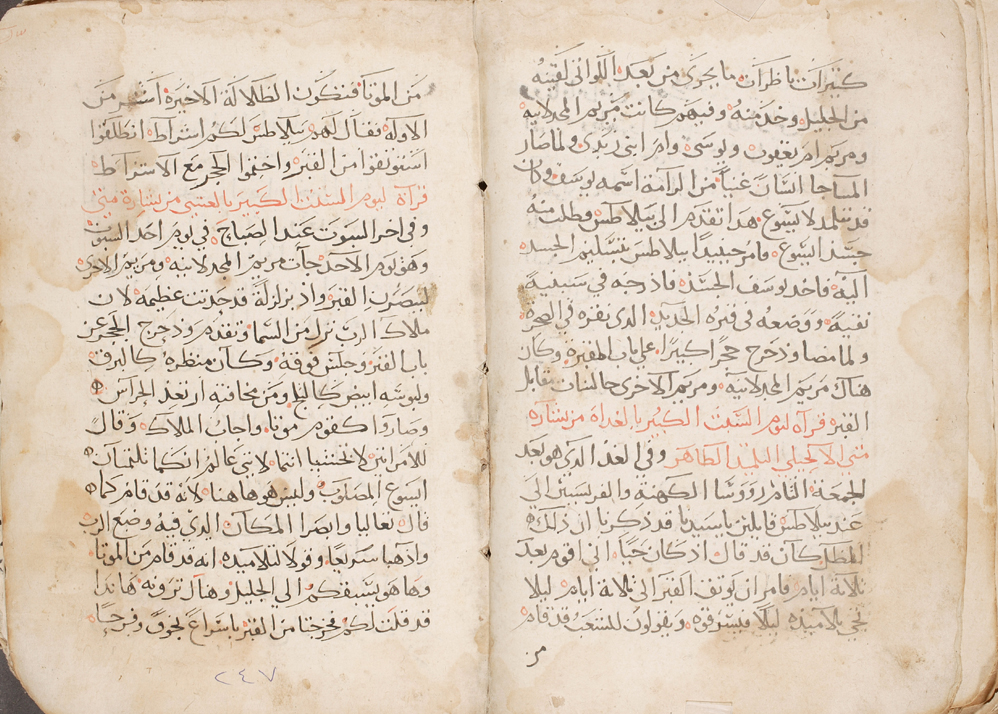 كثيرات ناظرات ما يجري من بعد اللواتي لقينه
من الجليل وخدمنه وفيهم كانت مريم المجدلانية
ومريم ام يعقوب ويوسي وام ابني زبدي ولما صار
المسا جا انسان غنيا من الرامة اسمه يوسف وكان
قد تتلمد لايسوع هدا تقدم الى بيلاطس وطلب منه
جسد ايسوع فامر حينيدا بيلاطس بتسليم الجسد
اليه فاخد يوسف الجسد فادرجه في سبنية
نقية ووضعه في قبره الجديد الدي نقره في الصخرة
ولما مضا ودحرج حجرا كبيرا علي باب المقبره وكان
هناك مريم المجدلانيه ومريم الاخرى جالستان مقابل
القبر قرآة ليوم السبت الكبير بالغداة من بشاره
متي الانجيلي التلميد الطاهر وفي الغد الدي هو بعد
الجمعة التام رووسا الكهنة والفريسيين الى
عند بيلاطس قايلين يا سيدنا قد دكرنا ان دلك
المظل كان قد قال اد كان حيا انى اقوم بعد
تلاتة ايام فامر ان يوتق القبر الى تلاتة ايام ليلا
تجي تلاميده ليلا فيسرقوه ويقولون للشعب قد قام
من
من الموتا فتكون الظلالة الاخيرة اشر من
الاوله فقال لهم بيلاطس لكم اشراط انطلقوا
استوتقوا من القبر واختموا الحجر مع الاشراط
قرآة ليوم السبت الكبير بالعشي من بشارة متي
وفي اخر السبوت عند الصباح في يوم احد السبوت
وهو يوم الاحد جات مريم المجدلانيه ومريم الاخرى
ليبصرن القبر واد بزلزلة قد حدتت عظيمه لان
ملاك الرب نزل من السما وتقدم ودحرج الحجر عن
باب القبر وجلس فوقه وكان منظره كالبرق
ولبوسه ابيض كالتلج ومن مخافته ارتعد الحراس
وصاروا كقوم موتا واجاب الملاك وقال
للامراتين لا تخشيا انتما لانى عالم انكما تلتمسان
ايسوع المصلوب وليس هو هاهنا لانه قد قام كما
قال تعاليا وابصرا المكان الدي فيه وضع الرب
وادهبا سريعا وقولا لتلاميده انه قد قام من الموتا
وها هو يسبقكم الي الجليل وهناك ترونه هاندا
قد قلت لكم فخرجتا من القبر باسراع بخوف وفرحا
٢٤٧